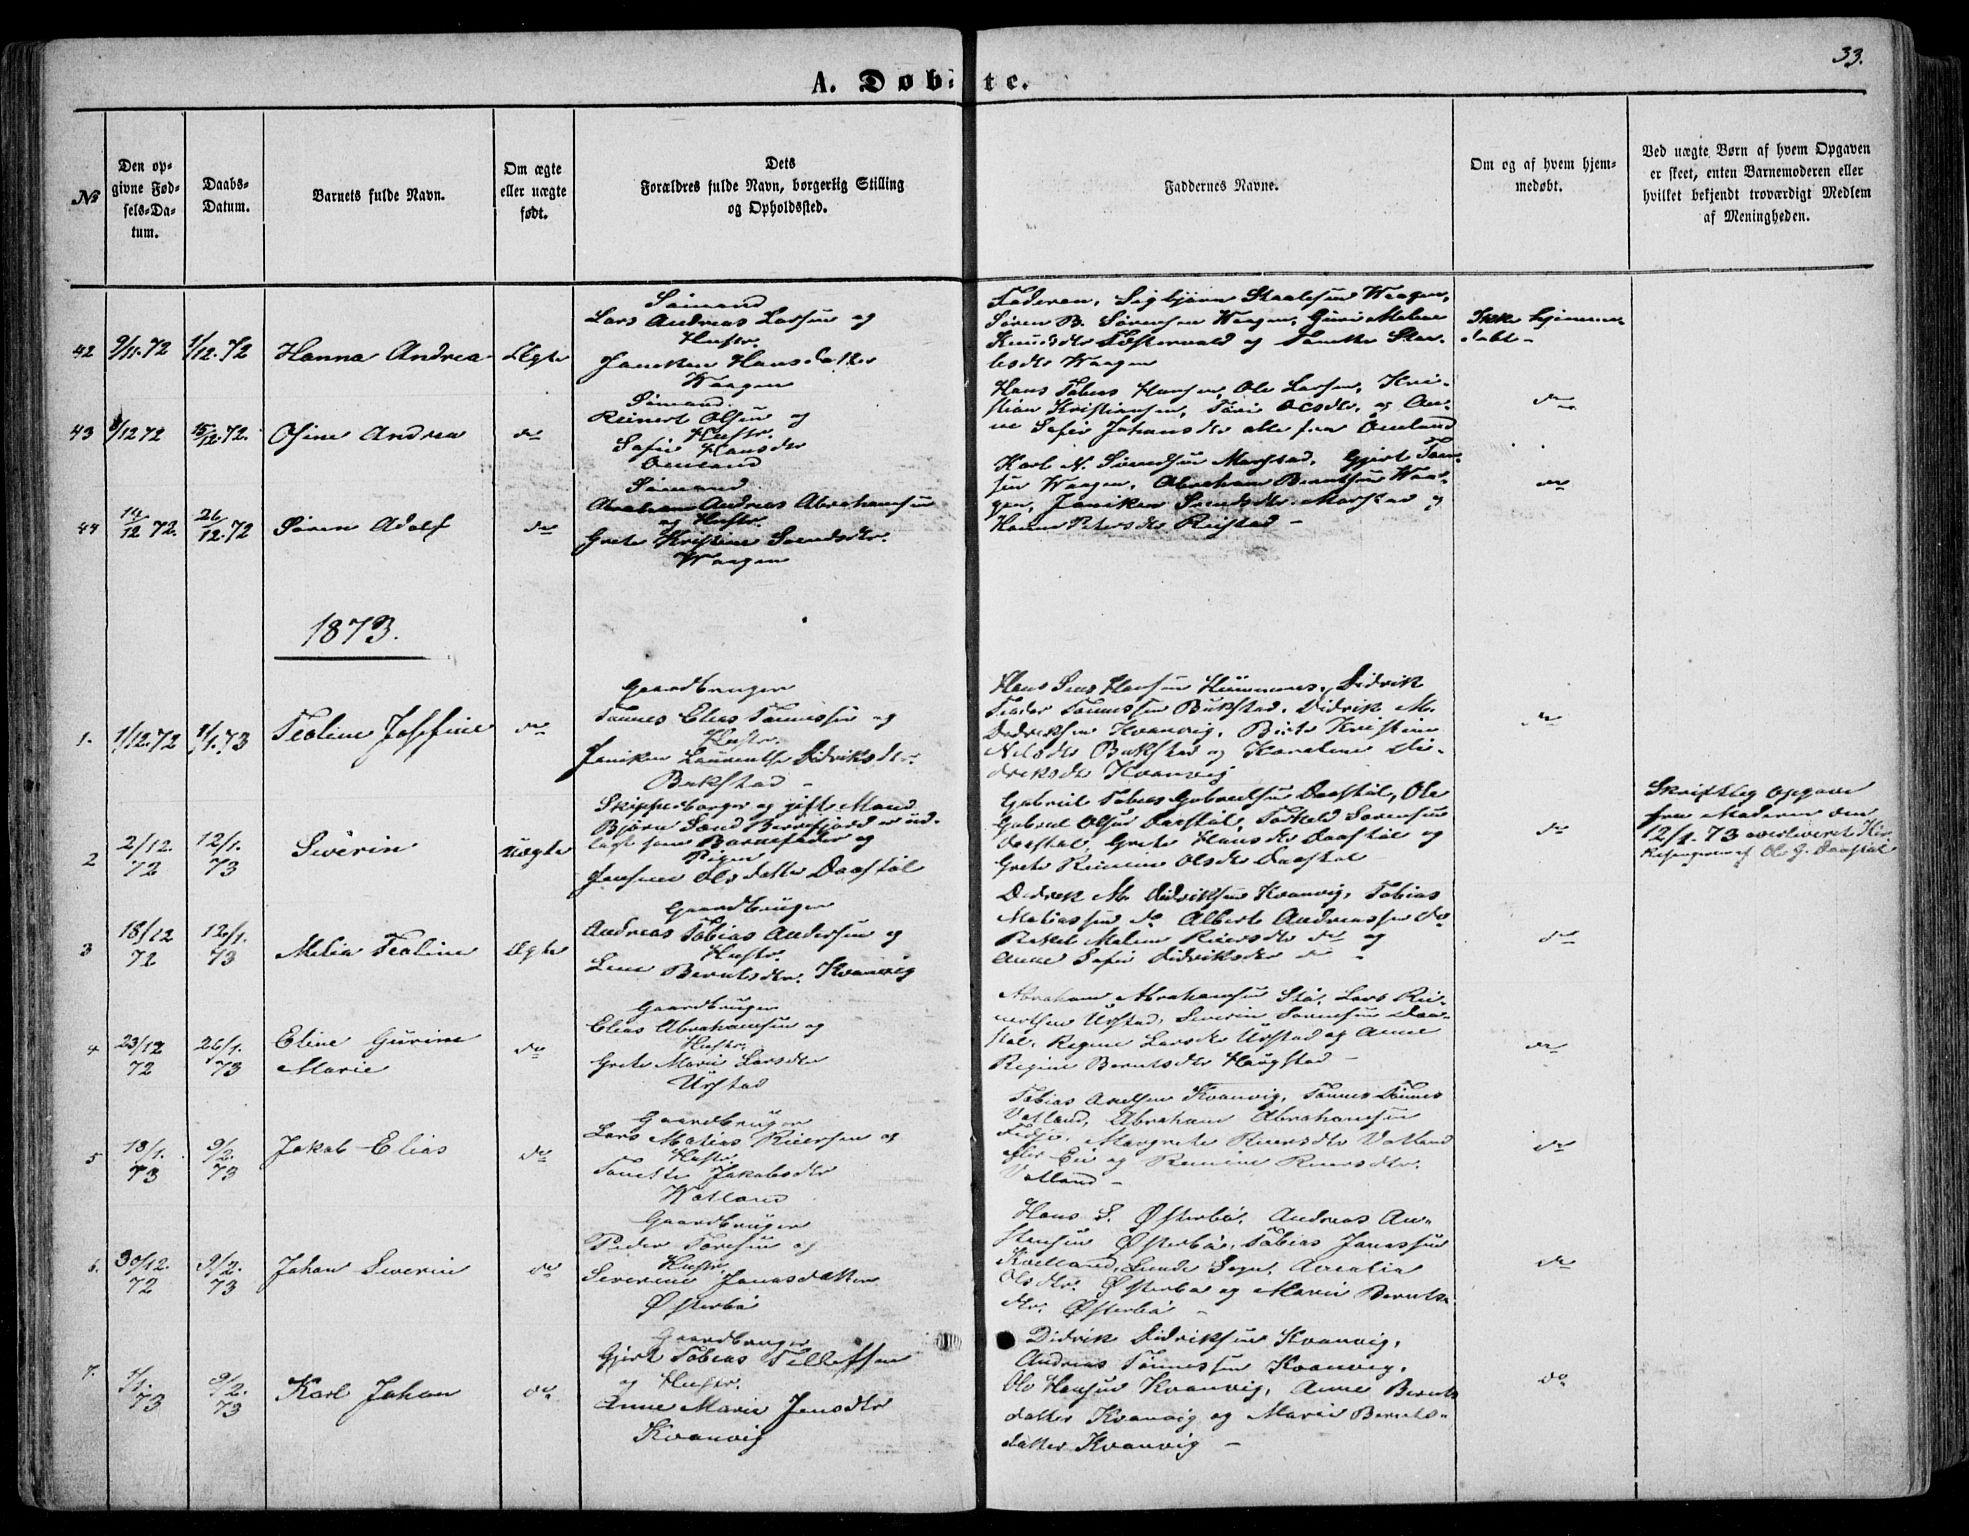 33.
A. Døbte.
№
Den op-
givne Fød-
sels-Da-
tum.
Daabs-
Datum.
Barnets fulde Navn.
Om ægte
eller uægte
født.
Dets
Forældres fulde Navn, borgerlig Stilling
og Opholdssted.
Faddernes Navne.
Om og af hvem hjem-
medøbt.
Ved uægte Børn af hvem Opgaven
er skeet, enten Barnemoderen eller
hvilket bekjendt troværdigt Medlem
af Menigheden.
42 9/11.72 1/12.72 Hanna Andrea Ægte
Sømand
Lars Andreas Larsen og
Hustr.
Janeken Hansdatter
Waagen
Faderen, Sigbjørn Staalesen Waagen,
Søren B. Sørensen Waagen, Guri Malene
Knudsdtr og Tonette Staa-
lesdtr Waagen
Ikke hjemme-
døbt-
43 8/12 72 15/12.72. Osine Andrea do
Sømand.
Reinert Olsen og
Hustr.
Sofie Hansdtr
Omland
Hans Tobias Hansen, Ole Larsen, Kri-
stian Kristiansen, Tori Olsdtr. og An-
ne Sofie Johansdtr alle fra Omland
do
44 14/12 72. 26/12.72 Søren Adolf do
Sømand.
Abraham Andreas Abrahamsen
og Hustr.
Grete Kristine Svendsdtr.
Waagen
Karl N. Svendsen Marstad, Gjert Tøn-
sen Waagen, Abraham Berntsen Waa-
gen, Janiken Svendsdtr. Marstad og
Hanne Petersdtr Reistad -
do
1873.
1. 1/12.72 1/1.73 Teoline Josefine do
Gaardbruger
Tønnes Elias Tønnessen og
Hustr.
Janiken Laurentse Didriksdtr.
Bukstad -
Hans Hansen , Didrik
Teodor Tønnessen Bukstad, Didrik M.
Didriksen Kvanvig, Berte Kristine
Nilsdtr Bukstad og Karoline Di-
driksdtr Kvanvig
do
2 2/12. 72 12/1. 73 Severin Uægte
Skipperborger og gift Mand
Bjørn Sand Bernfjord er ud-
lagt som Barnefader og
Pigen
Jensine Olsdatter Daastøl
Gabriel Tobias Gabrielsen Daastøl, Ole
Gabriel Olsen Daastøl, Torkeld Sørensen
Daastøl, Grete Hansdtr Daastøl og
Grete Olsdtr Daastøl
do
Skriftlig Opgave
fra Moderen den
12/1.73 overleveret Kir-
kesangeren af Ole G. Daastøl
3 18/12 72 12/1. 73 Melia Teoline Ægte
Gaardbruger
Andreas Tobias Andersen og
Hustr.
Lene Berntsdtr. Kvanvig
Didrik M. Didriksen Kvanvig, Tobias
Matiassen do Albert Andreassen do
Rakel Malene Reiersdtr do og
Anne Sofie Didriksdtr do -
do
4 23/12 72 26/1. 73 Eline Gurine
Marie do
Gaardbruger
Elias Abrahamsen og
Hustr.
Grete Marie Larsdtr
Urstad
Abraham Abrahamsen Stø, Lars Rei-
nertsen Urstad, Severin Tønnesen Daa-
støl, Regine Larsdtr Urstad og Anne
Regine Berntsdtr Haugstad -
do
5 13/1. 73 9/2. 73 Jakob Elias do
Gaardbruger
Lars Matias Reiersen og
Hustr.
Tonette Jakobsdtr
Watland
Tobias Axelsen Kvanvig, Tønnes Tønnes
Vatland, Abraham Abrahamsen
Fidje, Margrete Reiersdtr Vatland
og Reiersdtr.
Vatland -
do
6. 30/12. 72 9/2. 73 Johan Severin do
Gaardbruger
Peder Toresen og
Hustr.
Severine Jonasdatter
Østerbø
Hans S. Østerbø, Andreas An-
stensen Østerbø, Tobias Jonassen
Kvelland, Lunde Sogn, Amalia
Olsdtr. Østerbø og Marie Bernts-
dtr. Østerbø -
do
7. 1/1. 73 9/2. 73 Karl Johan do
Gaardbruger
Gjert Tobias Tollefsen
og Hustr.
Anne Marie Jensdtr
Kvanvig
Didrik Didriksen Kvanvig,
Andreas Tønnessen Kvanvig,
Ole Hansen Kvanvig, Anne Bernts-
datter Kvanvig og Marie Bernts-
datter Kvanvig -
do